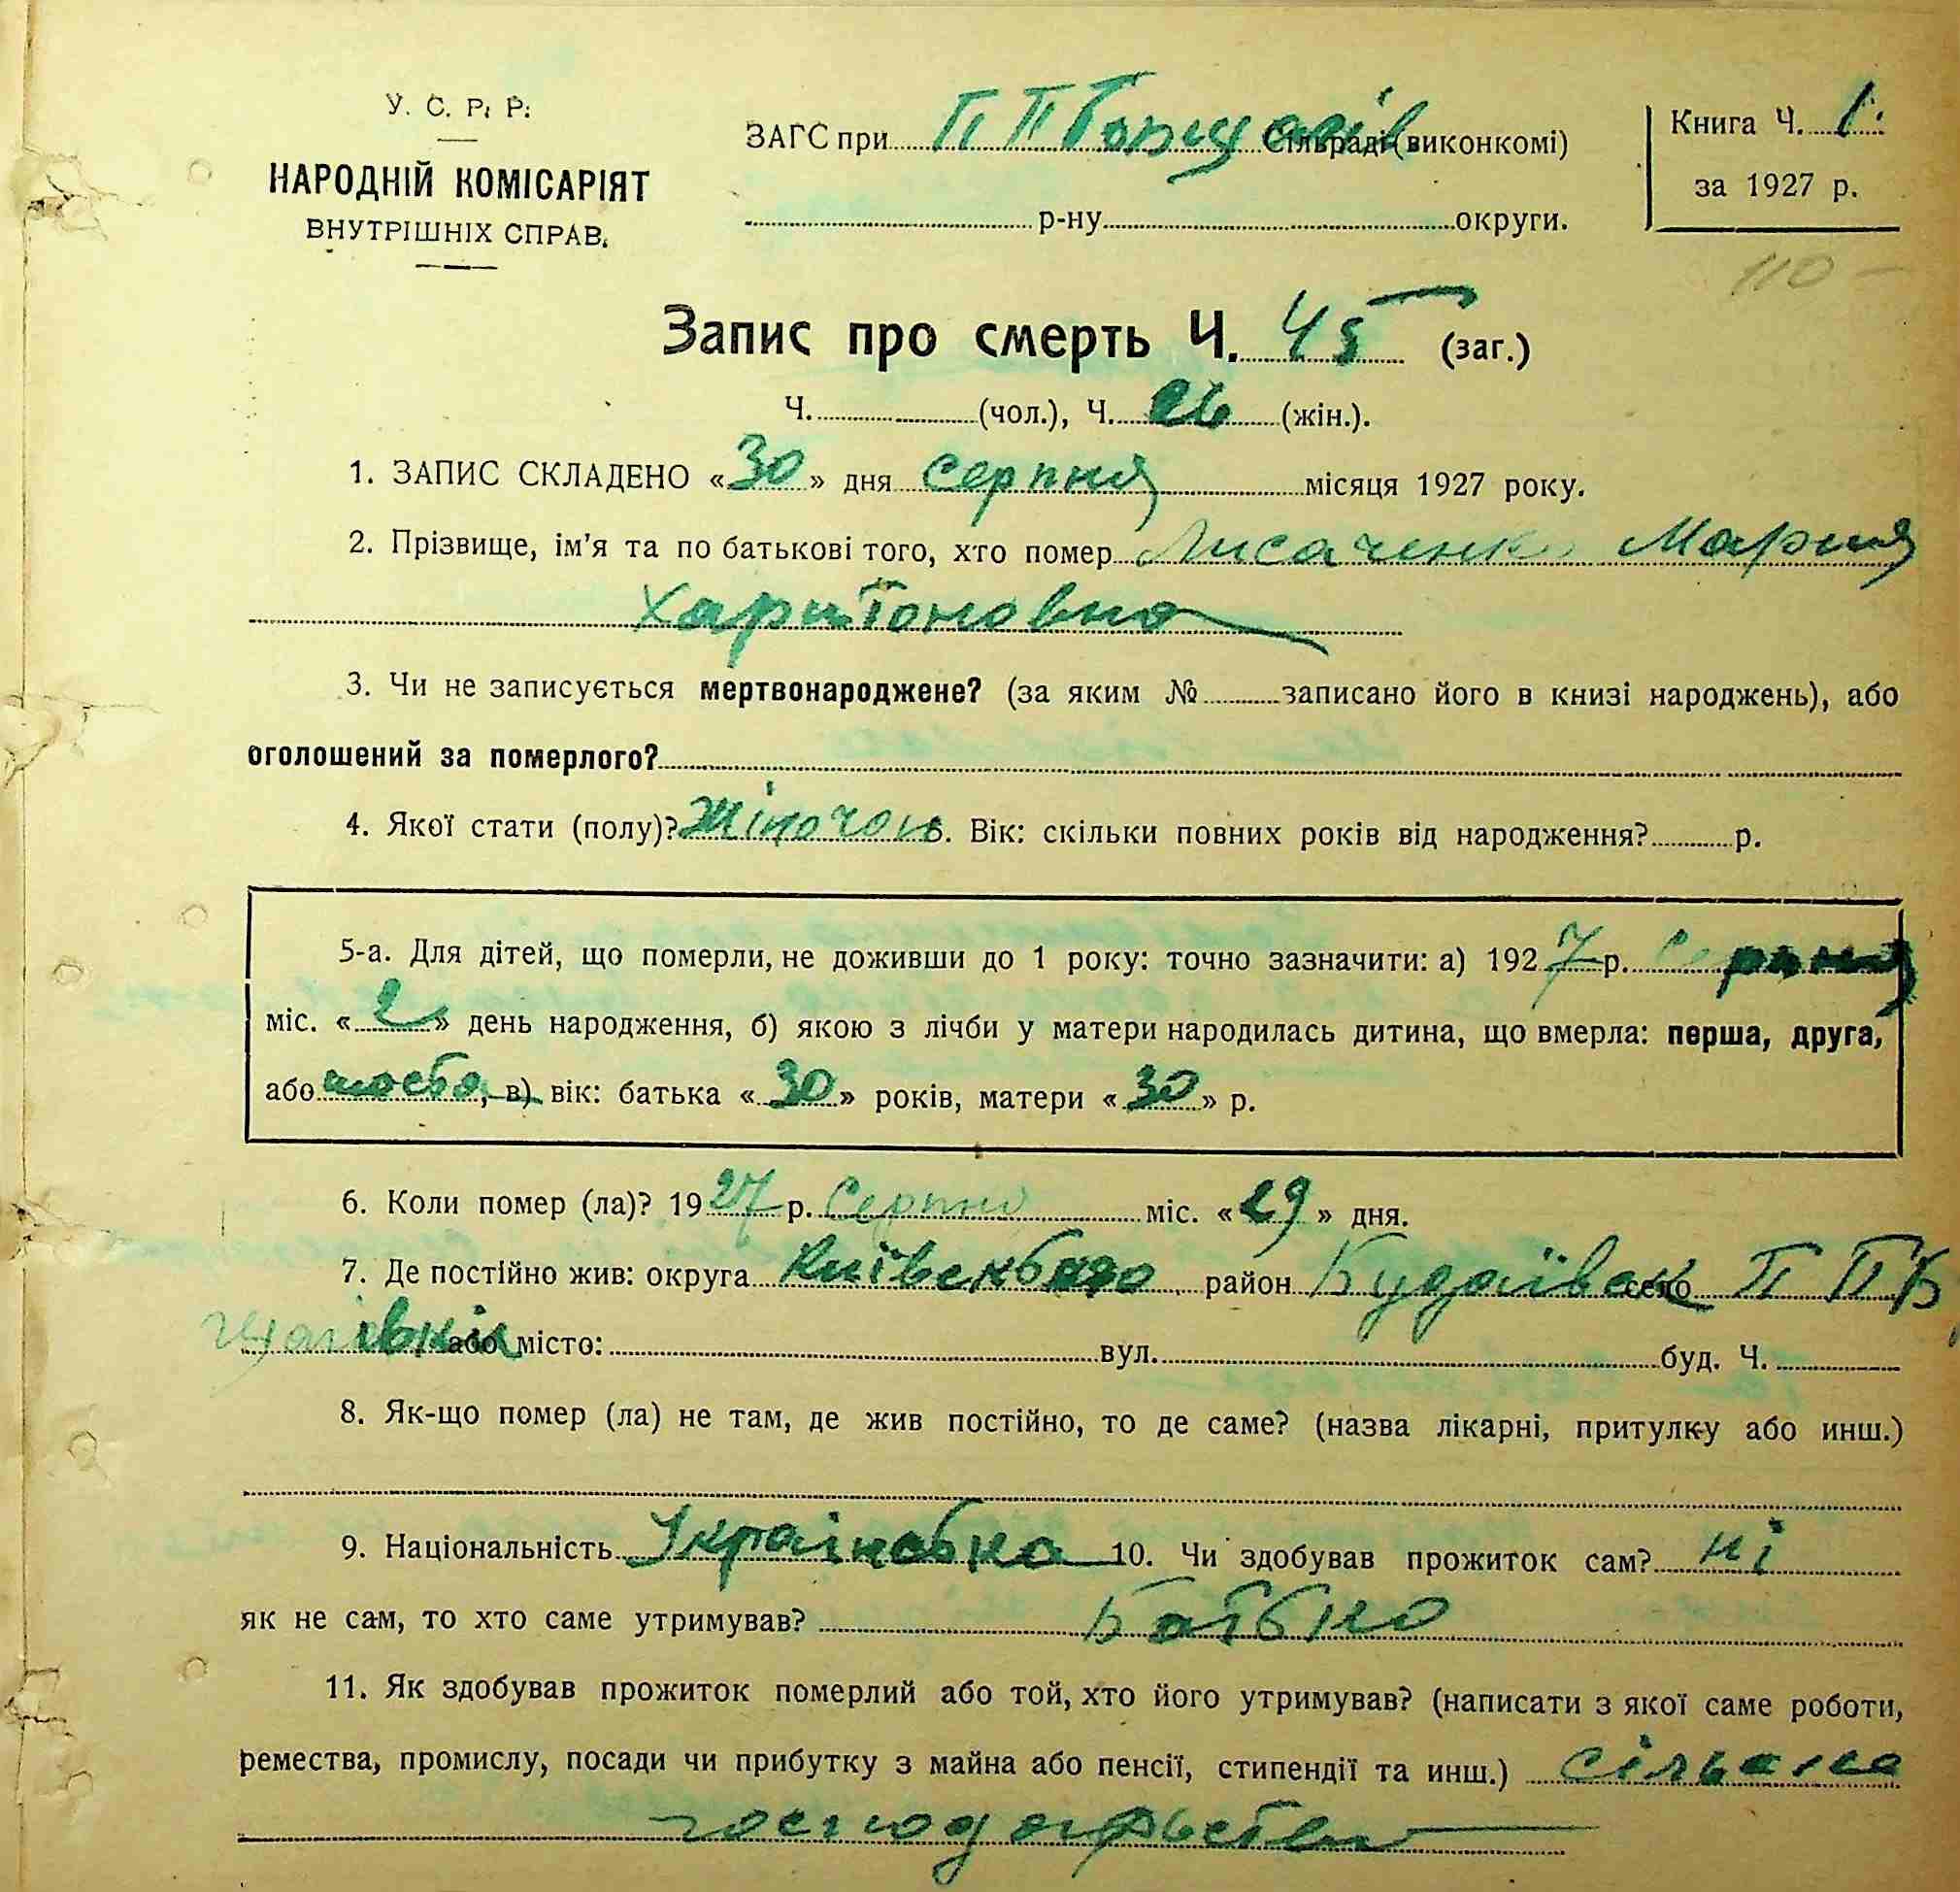 У. С. Р. Р.
НАРОДНІЙ КОМІСАРІЯТ
ВНУТРІШНІХ СПРАВ.
ЗАГС при П П Борщагів Сільраді (виконкомі)
р-ну округи.
Книга Ч. 1.
за 1927 р.
110 -
Запис про смерть Ч. 45 (заг.)
Ч. (чол.), Ч. 26 (жін.).
1. ЗАПИС СКЛАДЕНО «30» дня серпня місяця 1927 року.
2. Прізвище, ім'я та по батькові того, хто помер Лисаченко Мария
Харитоновна
3. Чи не записується мертвонароджене? (за яким № записано його в книзі народжень), або
оголошений за померлого?
4. Якої стати (полу)? Жіночоь. Вік: скільки повних років від народження? р.
5-а. Для дітей, що померли, не доживши до 1 року: точно зазначити: а) 1927 р. Серпня
міс. «2» день народження, б) якою з лічби у матери народилась дитина, що вмерла: перша, друга,
або шоста, в) вік: батька «30» років, матери «30» р.
6. Коли помер (ла)? 1927 р. Серпня міс. «29» дня.
7. Де постійно жив: округа Київська район Будаївськ село П П Б
щагівки або місто: вул. буд. Ч.
8. Як-що помер (ла) не там, де жив постійно, то де саме? (назва лікарні, притулку або инш.)
9. Національність Українська 10. Чи здобував прожиток сам? ні
як не сам, то хто саме утримував? Батько
11. Як здобував прожиток померлий або той, хто його утримував? (написати з якої саме роботи,
ремества, промислу, посади чи прибутку з майна або пенсії, стипендії та инш.) сільське
господарьство